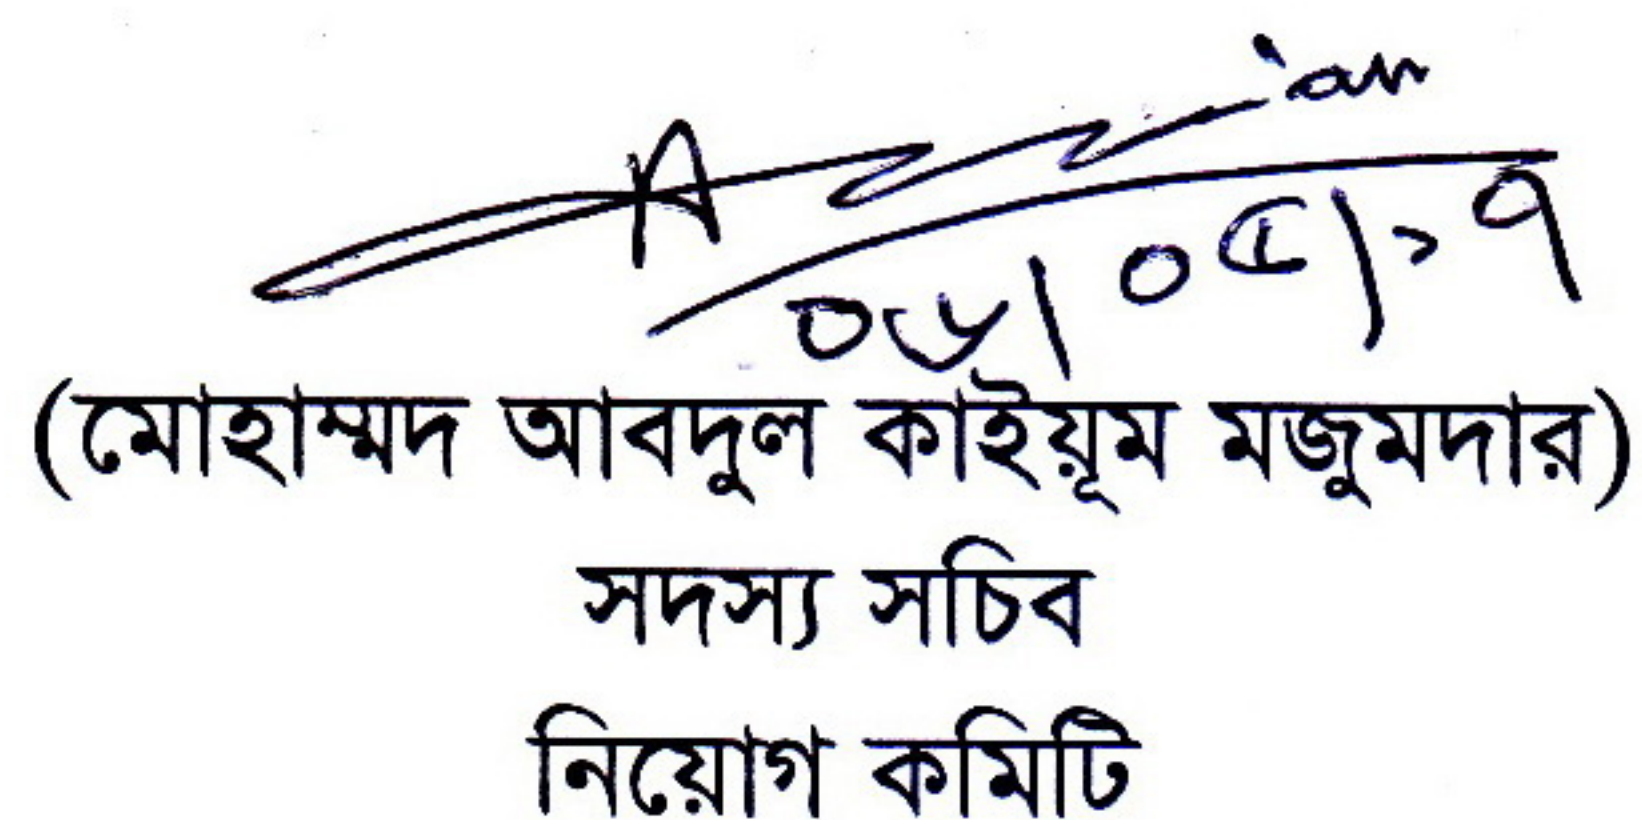 ০৮/০৫/১৭
(মোহাম্মদ আবদুল কাইয়ূম মজুমদার)
সদস্য সচিব
নিয়োগ কমিটি